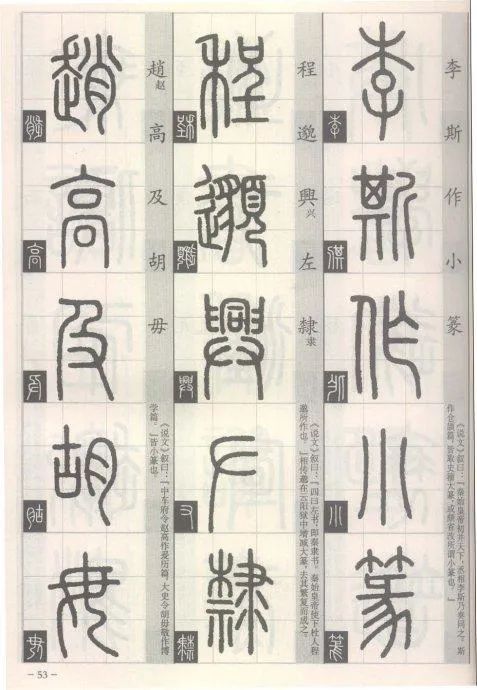 李斯作小篆
《说文》叙曰：「秦始皇帝初并天下，丞相李斯乃奏同之。斯
作仓颉篇，皆取史籀大篆，或颇省改所谓小篆也。」
李斯作小篆
程邈興兴左隸隶
《说文》叙曰：「四曰左书，即秦隶书。秦始皇帝使下杜人程
邈所作也。」相传邈在云阳狱中增减大篆，去其繁复而成之。
程邈興左隸
趙赵高及胡毋
《说文》叙曰：「中车府令赵高作爰历篇，大史令胡毋敬作博
学篇。」皆小篆也。
趙高及胡毋
－53－